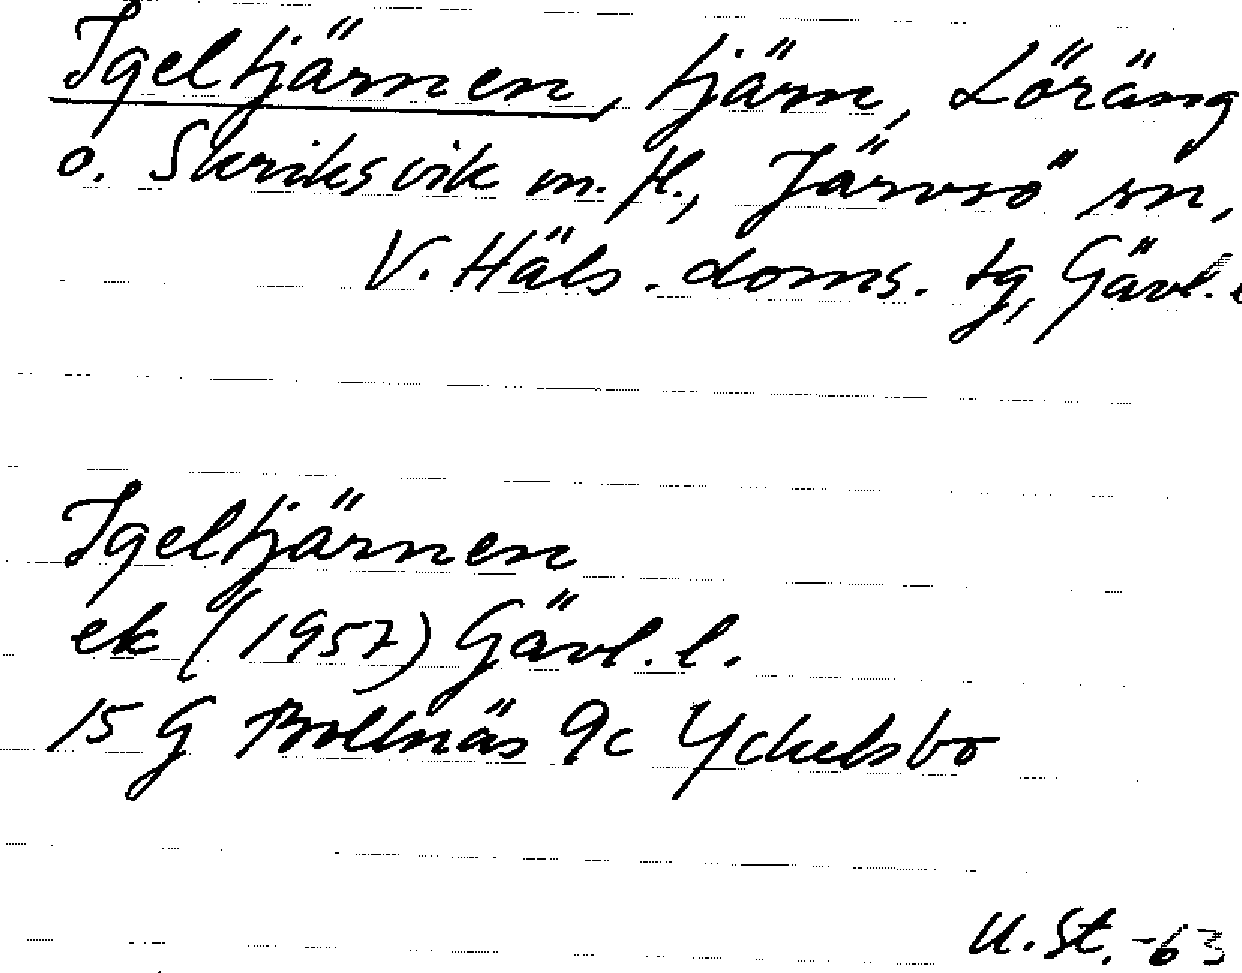 Igeltjärnen, tjärn, Löräng
o. Skriksvik m. fl., Järvsö sn,
V. Häls. doms. tg, Gävl. l
Igeltjärnen
ek (1957) Gävl. l.
15 G Bollnäs 9c Yckelsbo
U. St. -63